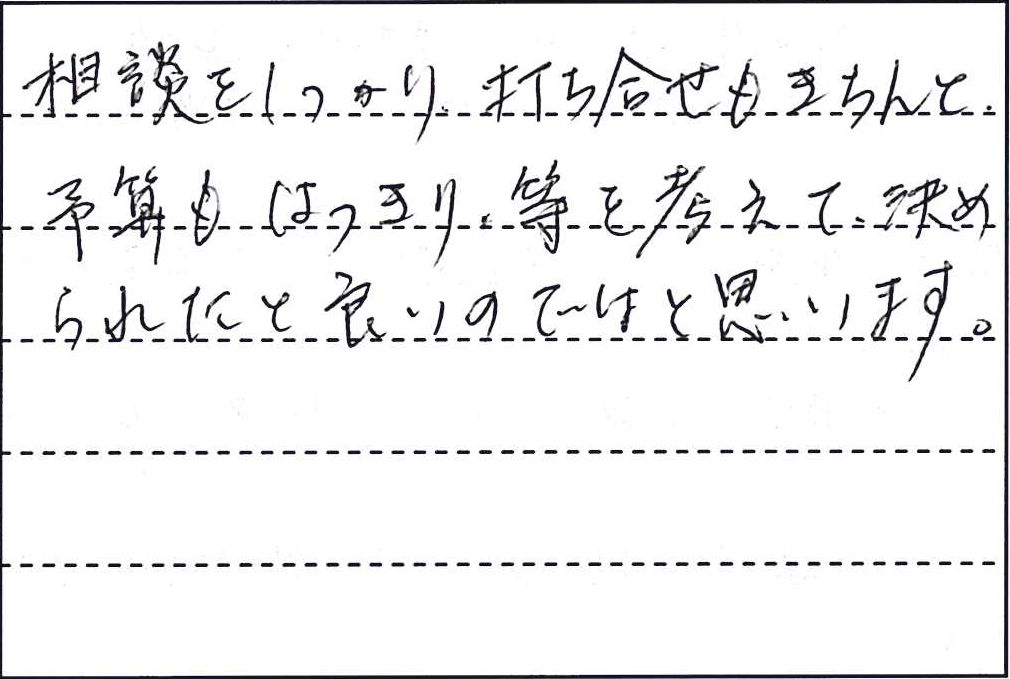 相談をしっかり、打ち合せもきちんと、
予算もはっきり、等を考えて、決め
られたと良いのではと思います。